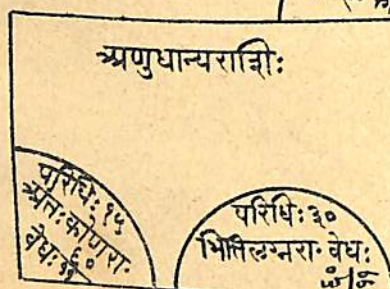 अणुधान्यराशिः
परिधिः १५
अंतःकोणरा॰
वेधः
परिधिः ३०
भितिलग्नरा॰ वेधः